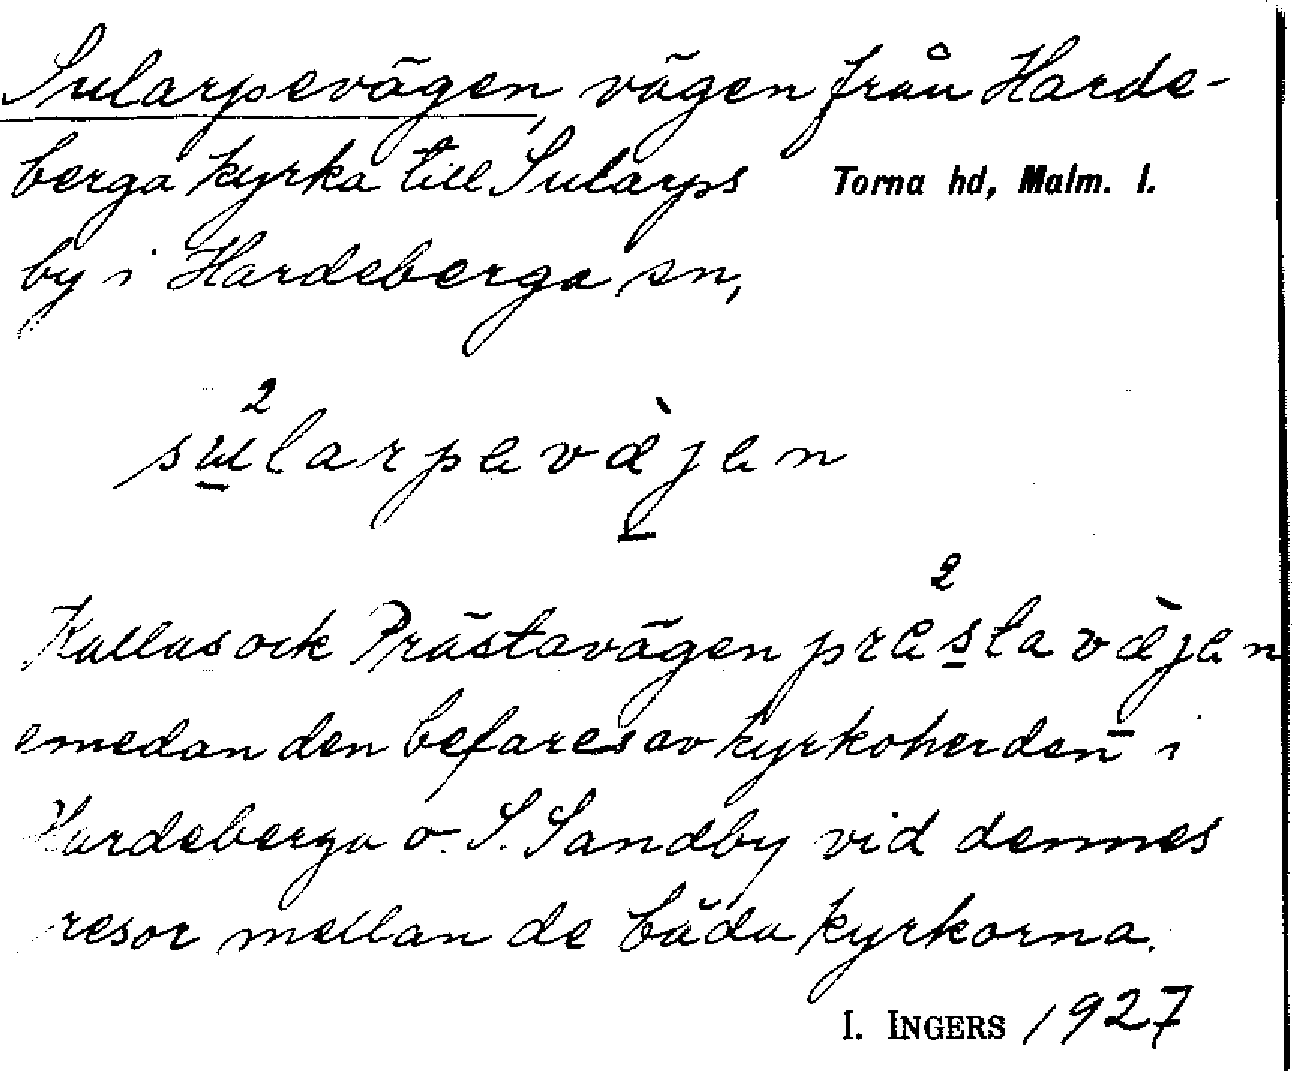 Sularpevägen, vägen från Harde-
berga kyrka till Sularps Torna hd, Malm. l.
by i Hardeberga sn,
2
sularpevàjen
2
Kallas ock Prästavägen prästavàjen
emedan den befares av kyrkoherden i
Hardeberga o. S. Sandby vid dennes
resor mellan de båda kyrkorna.
I. INGERS 1927